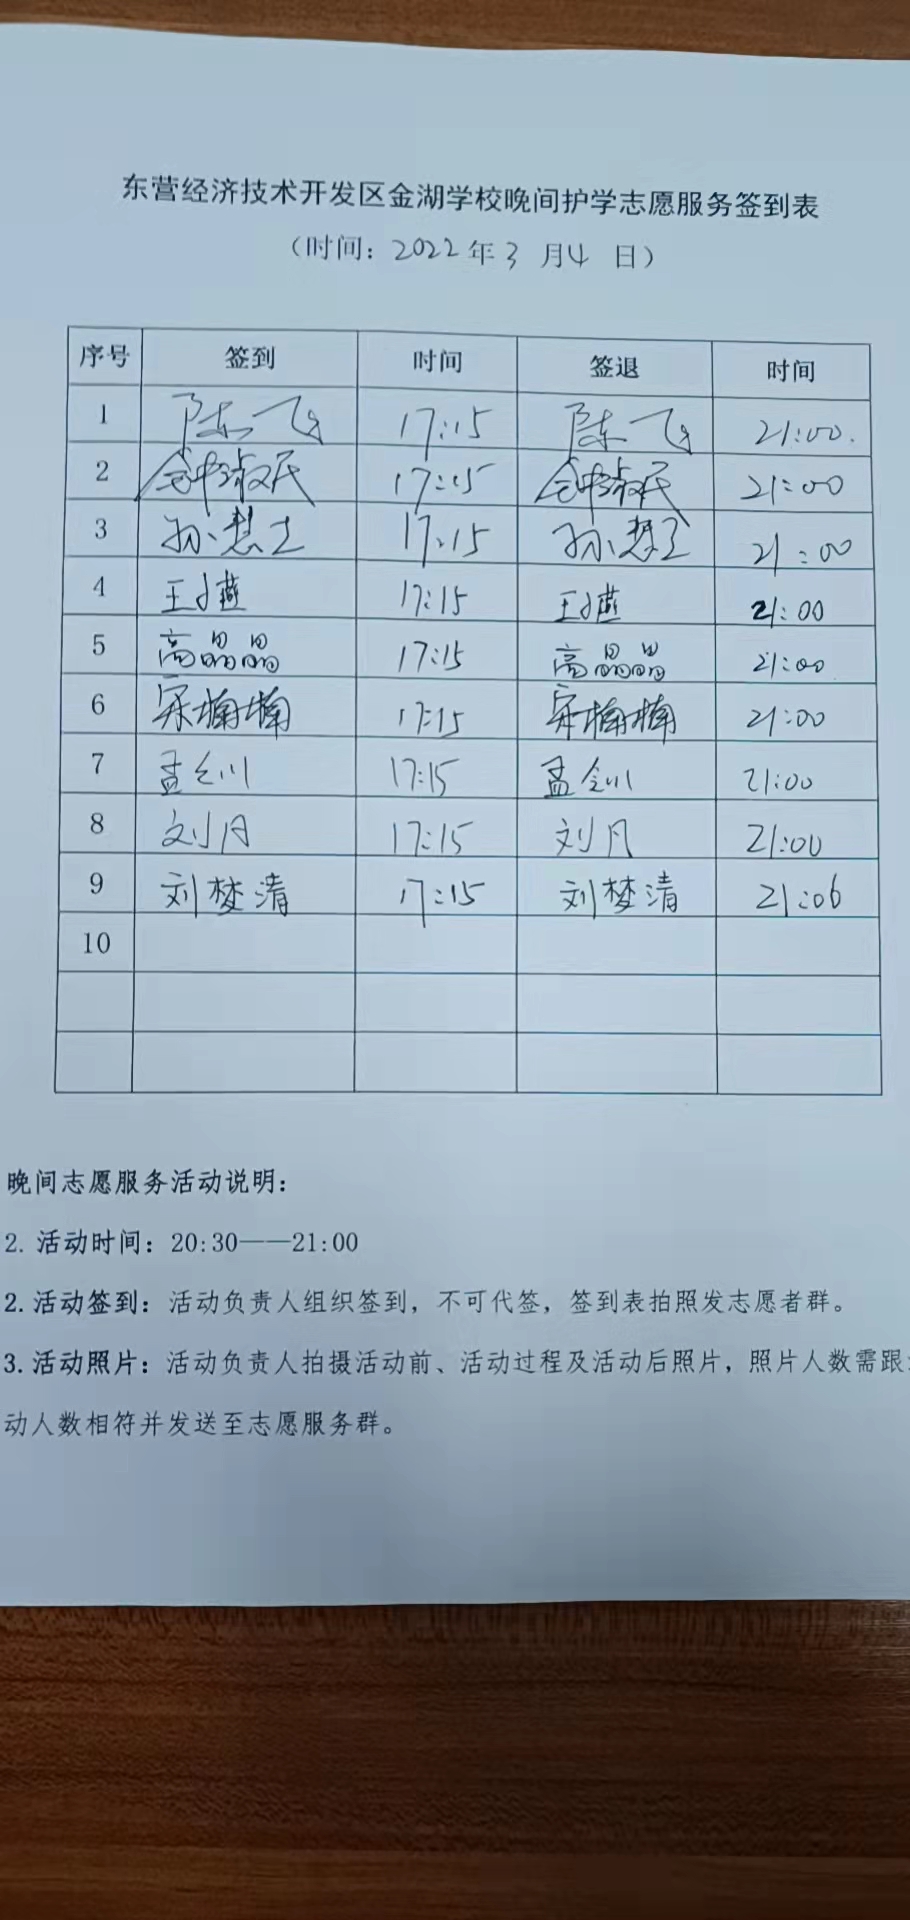 东营经济技术开发区金湖学校晚间护学志愿服务签到表
（时间：2022年3月4日）
序号 签到 时间 签退 时间
1 陈飞 17:15 陈飞 21:00.
2 钟淑民 17:15 钟淑民 21:00
3 孙慧 17:15 孙慧 21:00
4 王小燕 17:15 王小燕 21:00
5 高晶晶 17:15 高晶晶 21:00
6 宋楠楠 17:15 宋楠楠 21:00
7 孟 17:15 孟 21:00
8 刘月 17:15 刘月 21:00
9 刘梦清 17:15 刘梦清 21:06
10
晚间志愿服务活动说明：
2. 活动时间：20:30——21:00
2. 活动签到：活动负责人组织签到，不可代签，签到表拍照发志愿者群。
3. 活动照片：活动负责人拍摄活动前、活动过程及活动后照片，照片人数需跟
动人数相符并发送至志愿服务群。